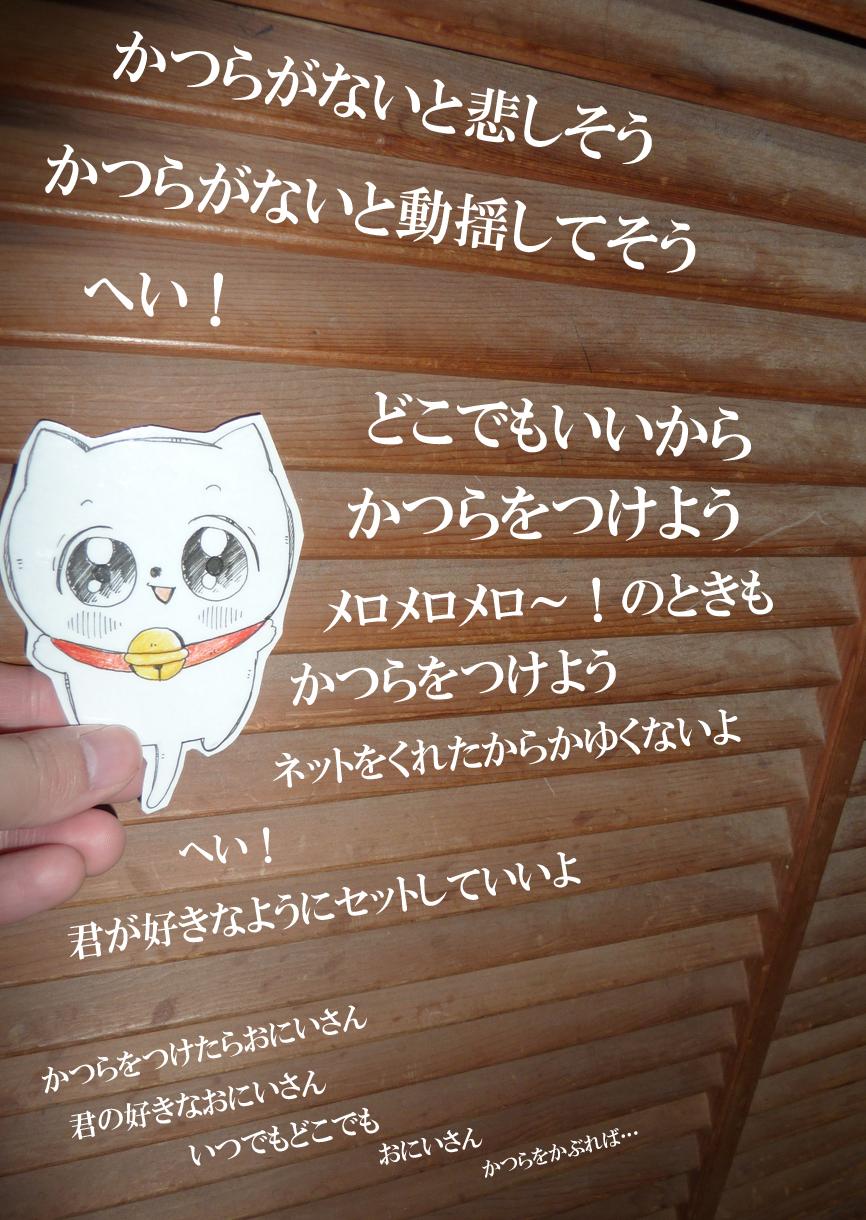 かつらがないと悲しそう
かつらがないと動揺してそう
へい！
どこでもいいから
かつらをつけよう
メロメロメロ～！のときも
かつらをつけよう
ネットをくれたからかゆくないよ
へい！
君が好きなようにセットしていいよ
かつらをつけたらおにいさん
君の好きなおにいさん
いつでもどこでも
おにいさん
かつらをかぶれば…